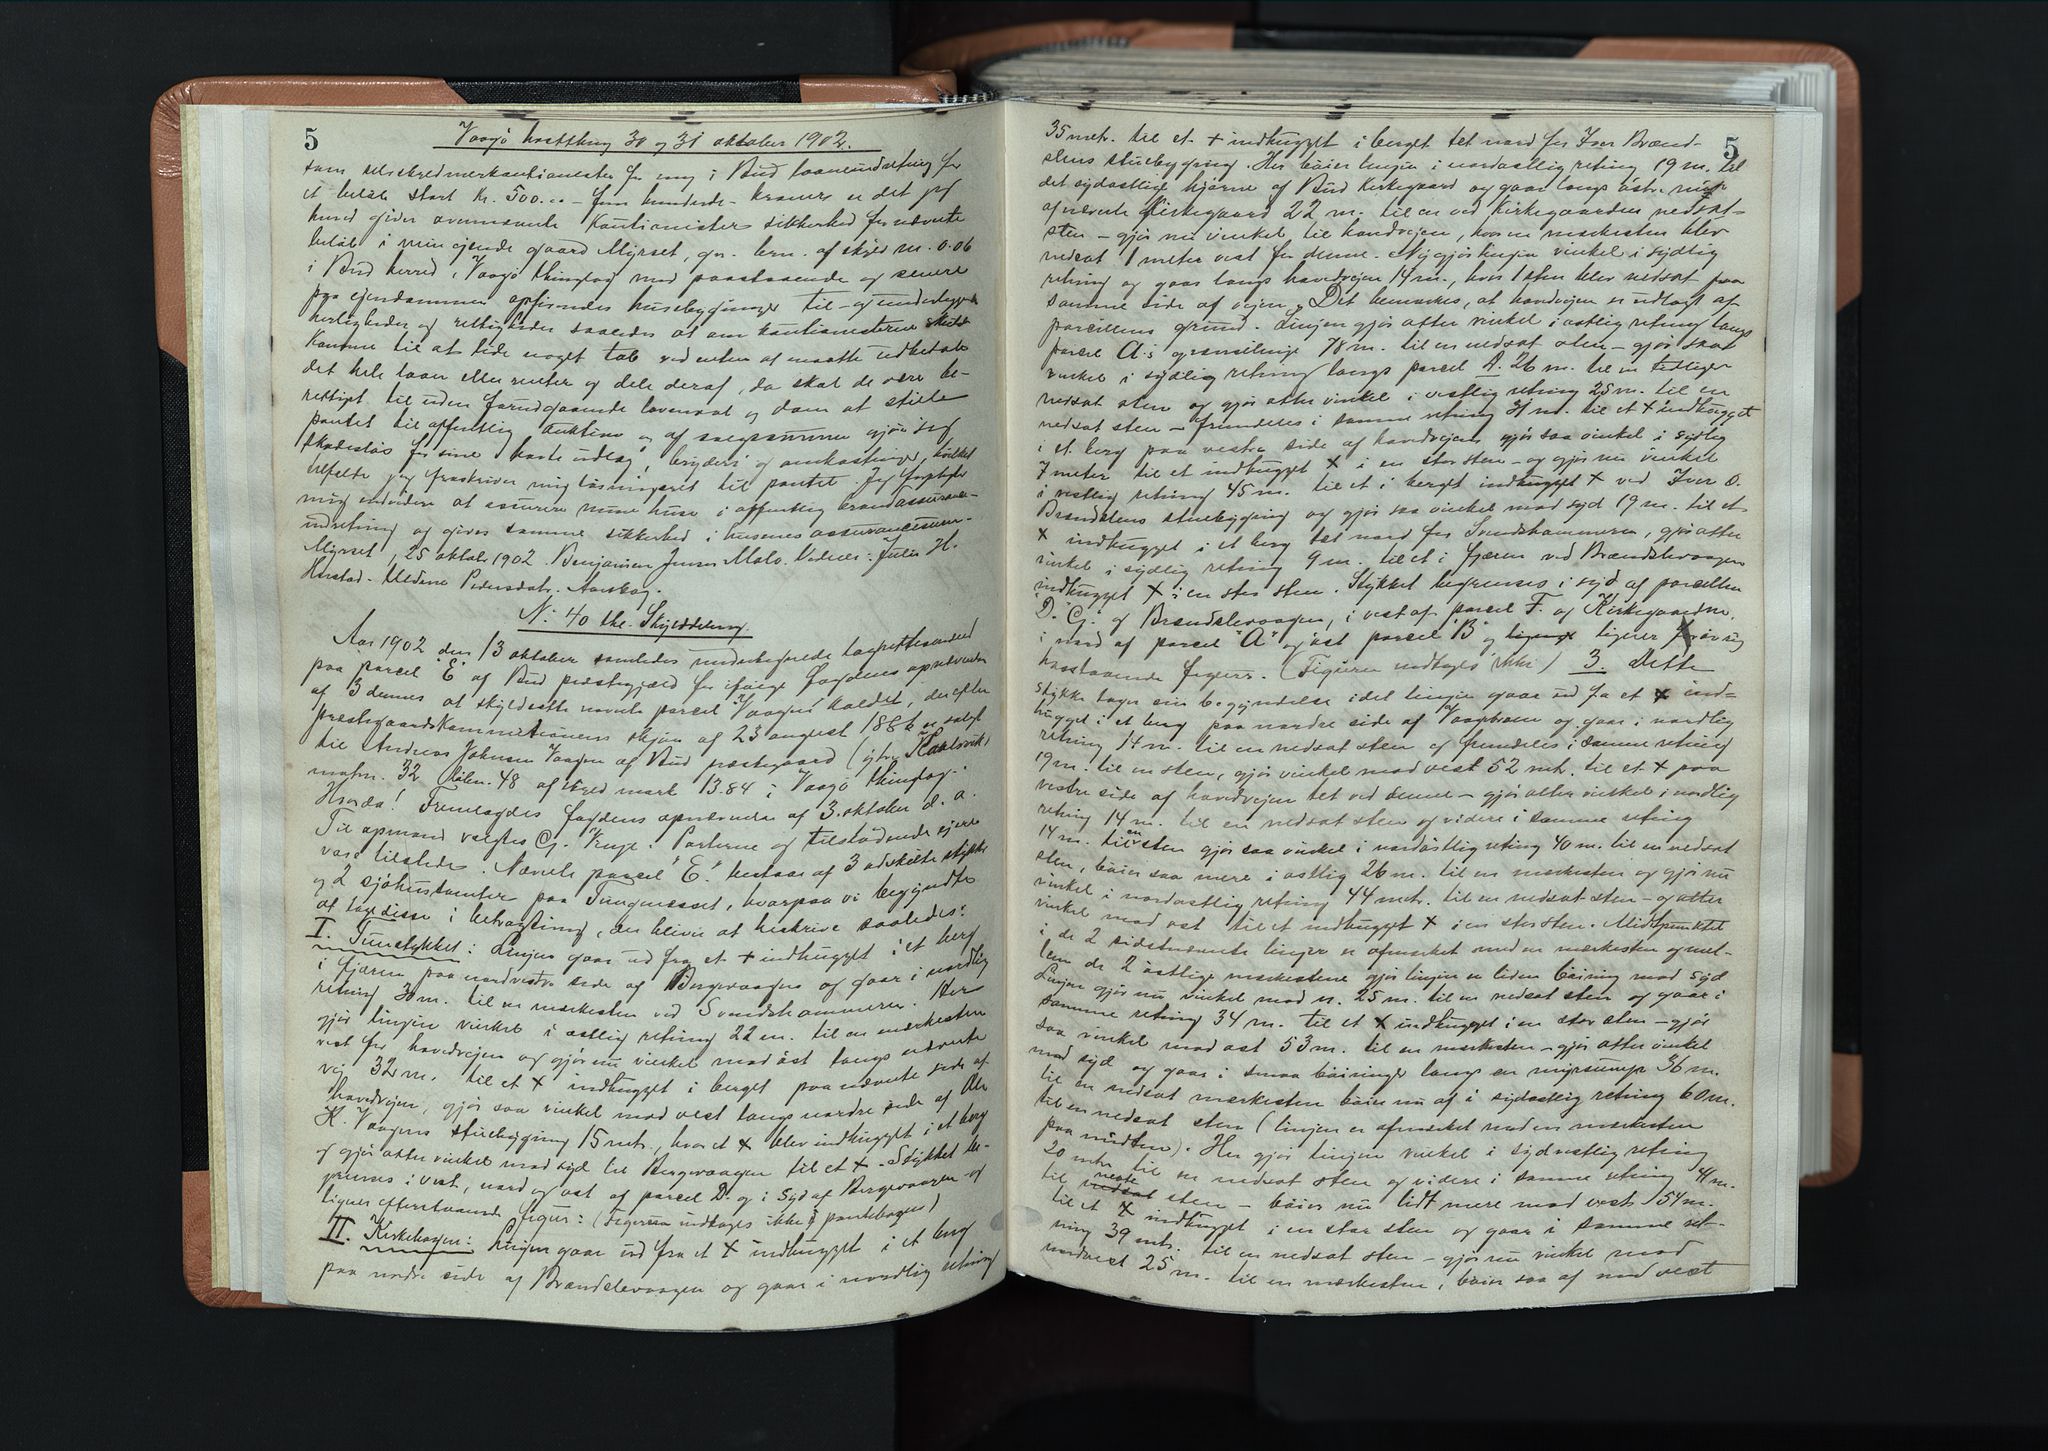 5
Vaagø hosttthing 30 og 31 oktober 1902.
som selvskyldnerkautionister for mig i Bud laaneindretning for
et beløb stort Kr. 500.00 - fem hundrede - kroner er det jeg
herved giver ovennævnte kautionister sikkerhed for nævnte
beløb i min eiende gaard Myrset, gn. brn. af skyld m. 0.06
i Bud herred, Vaagø thinglag med paastaaende og senere
paa eiendommen opførendes husebygninger til- og underliggende
herligheder og rettigheder saaledes at om kautionisterne skulde
komme til at lide noget tab ved enten at maatte udbetale
det hele laan eller renter og dele deraf, da skal de være be-
rettiget til uden forudgaaende lovmaal og dom at stille
pantet til offentlig auktion og af salgssummen gjøre sig
skadesløs for sine havte udlæg, bryderi og omkostninger, hvilket
tilfælde jeg fraskriver mig løsningsret til pantet. Jeg forpligter
mig endvidere at assurere mine huse i offentlig brandassurance-
indretning og giver samme sikkerhed i husenes assurancesum.
Myrset, 25 oktober 1902. Benjamin Jensen Malo. Vidner: Julis H.
Harstad. Uldene Pedersdatr. Aarskog.
N: 40 thl. Skylddeling.
Aar 1902 den 13 oktober samledes undertegnede lagrettesmænd
paa parcel "E" af Bud præstegjæld for ifølge fogdens opnævnelse
af 3 dennes at skyldsætte nævnte parcel "Vaagen" kaldet, der efter
præstegaardskommissionens skjøn af 23 august 1886 er solgt
til Andreas Johnsen Vaagen af Bud præstegaard (ytre Karlsvik)
matrn. 32 løbn. 48 af skyld mark 13.84 i Vaagø thinglag.
Hvorda! Fremlagdes fogdens opnævnelse af 3. oktober d. a.
Til opmand valgtes G. Venge. Parterne og tilstødende eiere
var tilstede. Nævnte parcel "E" bestaar af 3 adskilte stykker
og 2 sjøhustomter paa Tungenesset, hvorpaa vi begyndte
at tage disse i betragtning, der bliver at beskrive saaledes:
I. Tunstykket: Linjen gaar ud fra et + indhugget i et berg
i fjæren paa nordvestre side af Bergevaagen og gaar i nordlig
retning 30 m. til en merkesten ved Svendshammeren. Her
gjør linjen vinkel i østlig retning 22 m. til en merkesten
vest for hovedvejen og gjør nu vinkel mod øst langs nævnte
vej 32 m. til et + indhugget i berget paa nævnte side af
hovedvejen, gjør saa vinkel mod vest langs nordre side af Ole
H. Vaagens stuebygning 15 mtr., hvor et + blev indhugget i et berg
og gjør atter vinkel mod syd til Bergevaagen til et +. Stykket be-
grenses i vest, nord og øst af parcel D. og i syd af Bergevaagen og
ligner efterstaaende figur: (Figuren indtages ikke i pantebogen)
II. Kirkehagen: Linjen gaar ud fra et + indhugget i et berg
paa nordre side af Brandslevaagen og gaar i nordlig retning
5
35 mtr. til et + indhugget i berget tet nord for Iver Brænd-
slens stuebygning. Her bøier linjen i nordøstlig retning 19 m. til
det sydøstlige hjørne af Bud Kirkegaard og gaar langs østre mur
af nævnte kirkegaard 22 m. til en ved Kirkegaarden nedsat-
sten - gjør nu vinkel til hovedvejen, hvor en merkesten blev
nedsat 1 meter vest for denne. Ny gjør linjen vinkel i sydlig
retning og gaar langs hovedvejen 14 m., hvor 1 sten blev nedsat paa
samme side af vejen. Det bemerkes, at hovedvejen er udlagt af
parcellens grund. Linjen gjør atter vinkel i østlig retning langs
parcel A.s grænselinje 78 m. til en nedsat sten - gjør saa
vinkel i sydlig retning langs parcel A. 26 m. til en tidligere
nedsat sten og gjør atter vinkel i vestlig retning 25 m. til en
nedsat sten - fremdeles i samme retning 31 m. til et + indhugget
i et berg paa vestre side af hovedvejen, gjør saa vinkel i sydlig
7 meter til et indhugget + i en stor sten - og gjør nu vinkel
i vestlig retning 45 m. til et i berget indhugget + ved Iver O.
Brandslens stuebygning og gjør saa vinkel mod syd 19 m. til et
+ indhugget i et berg tet nord for Svendshammeren, gjør atter
vinkel i sydlig retning 9 m. til et i fjæren ved Brændslevaagen
indhugget + i en stor sten. Stykket begrænses i syd af parcellen
D. G. og Brændslevaagen, i vest af parcel F. og Kirkegaarden
i nord af parcel "A" og øst parcel "B" og ligner ligner
hosstaaende figur. (Figuren indtages ikke) 3. Dette
stykke tager sin begyndelse idet linjen gaar ud fra et + ind-
hugget i et berg paa nordre side af Vaagebroen og gaar i nordlig
retning 14 m. til en nedsat sten og fremdeles i samme retning
19 m. til en sten, gjør vinkel mod vest 52 mtr. til et + paa
vestre side af hovedvejen tet ved denne - gjør atter vinkel i nordlig
retning 14 m. til en nedsat sten og videre i samme retning
14 m. til en sten gjør saa vinkel i nordøstlig retning 40 m. til en nedsat
sten, bøier saa mere i østlig 26 m. til en merkesten og gjør nu
vinkel i nordøstlig retning 44 mtr. til en nedsat sten - og atter
vinkel mod øst til et indhugget + i en stor sten. Midtpunktet
i de 2 sidstnævnte linjer er afmerket med en merkesten og mel-
lem de 2 østlige merkestene gjør linjen en liden bøining mod syd
Linjen gjør nu vinkel mod n. 25 m. til en nedsat sten og gaar i
samme retning 34 m. til et + indhugget i en stor sten - gjør
saa vinkel mod øst 53 m. til en merkesten - gjør atter vinkel
mod syd og gaar i smaa bøininger langs en myrsump 36 m.
til en nedsat merkesten bøier nu af i sydøstlig retning 60 m.
til en nedsat sten (linjen er afmerket med en merkesten
paa midten). Her gjør linjen vinkel i sydvestlig retning
20 mtr. til en nedsat sten og videre i samme retning 41 m.
til næste nedsat sten - bøier nu lidt mere mod vest 54 m.
til et + indhugget i en stor sten og gaar i samme ret-
ning 39 mtr. til en nedsat sten - gjør nu vinkel mod
nordvest 25 m. til en merkesten, bøier saa af mod vest